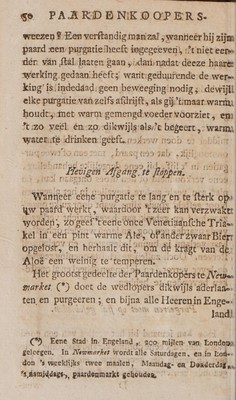 60 PAARDENKOOPERS-
weezen? Een verstandig man zal, wanneer hij zijn
paard een purgatie heeft ingegeeven, 't niet eer-
der van stal laaten gaan, dan nadat deeze haare
werking gedaan heeft; want geduurende de wer-
king is indedaad geen beweeging nodig, dewijl
elke purgatie van zelfs afdrijft, als gij 't maar warm
houdt, met warm gemengd voeder voorziet, en
't zo veel en zo dikwijls als 't begeert, warm
water te drinken geeft.
Hevigen Afgang te stoppen.
Wanneer eene purgatie te lang en te sterk op
uw paard werkt, waardoor 't zeer kan verzwakt
worden, zo geef 't eene once Venetiaansche Tria-
kel in een pint warme Ale, of ander zwaar Bier
opgelost, en herhaalt dit, om de kragt van de
Aloë een weinig te temperen.
Het grootst gedeelte der Paardenkopers te New-
market (*) doet de wedlopers dikwijls aderlaa-
ten en purgeeren; en bijna alle Heeren in Enge-
land
(*) Eene Stad in Engeland, 200 mijlen van Londen
gelegen. In Newmarket wordt alle Saturdagen, en in Lon-
don 's weeklijks twee maalen, Maandag en Donderdag
's namiddags, paardenmarkt gehouden.